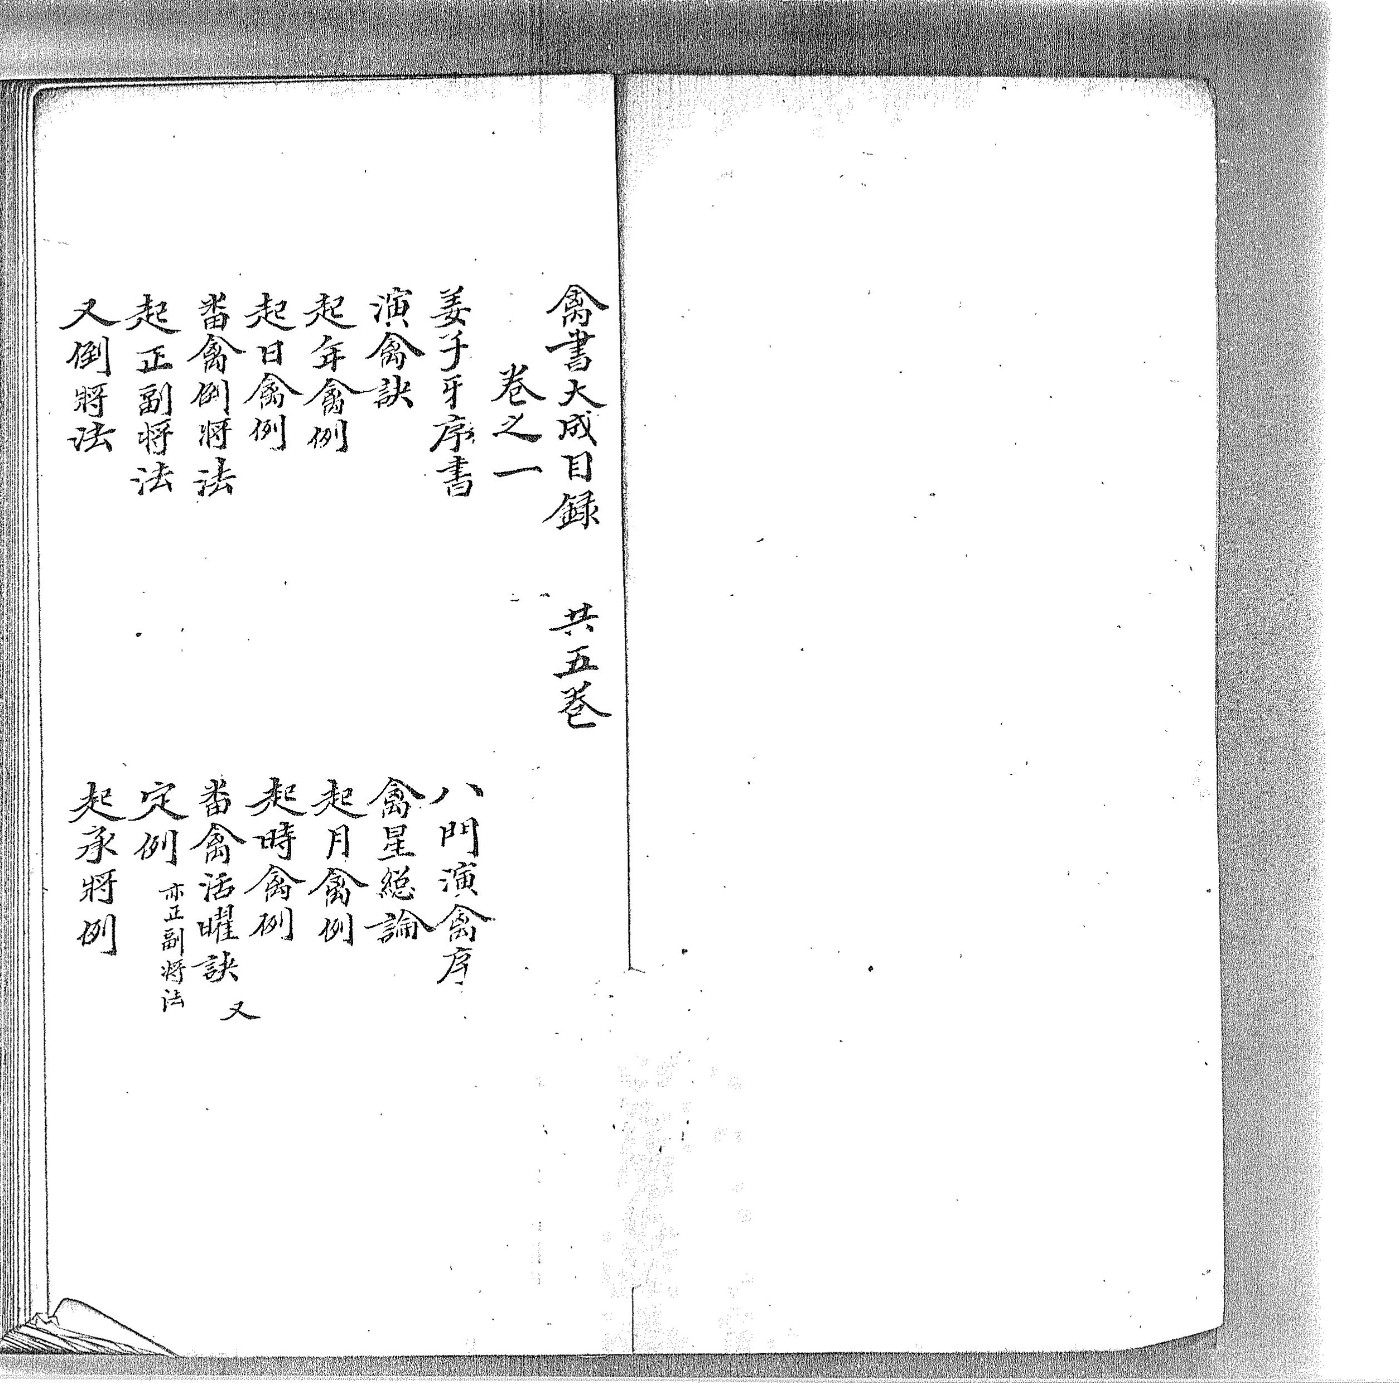 禽書大成目録　共五巻
卷之一
姜子牙序書　八門演禽序
演禽訣　禽星総論
起年禽例　起月禽例
起日禽例　起時禽例
畨禽倒將法　畨禽活曜訣　又
起正副將法　定例　亦正副將法
又倒將法　起承將例